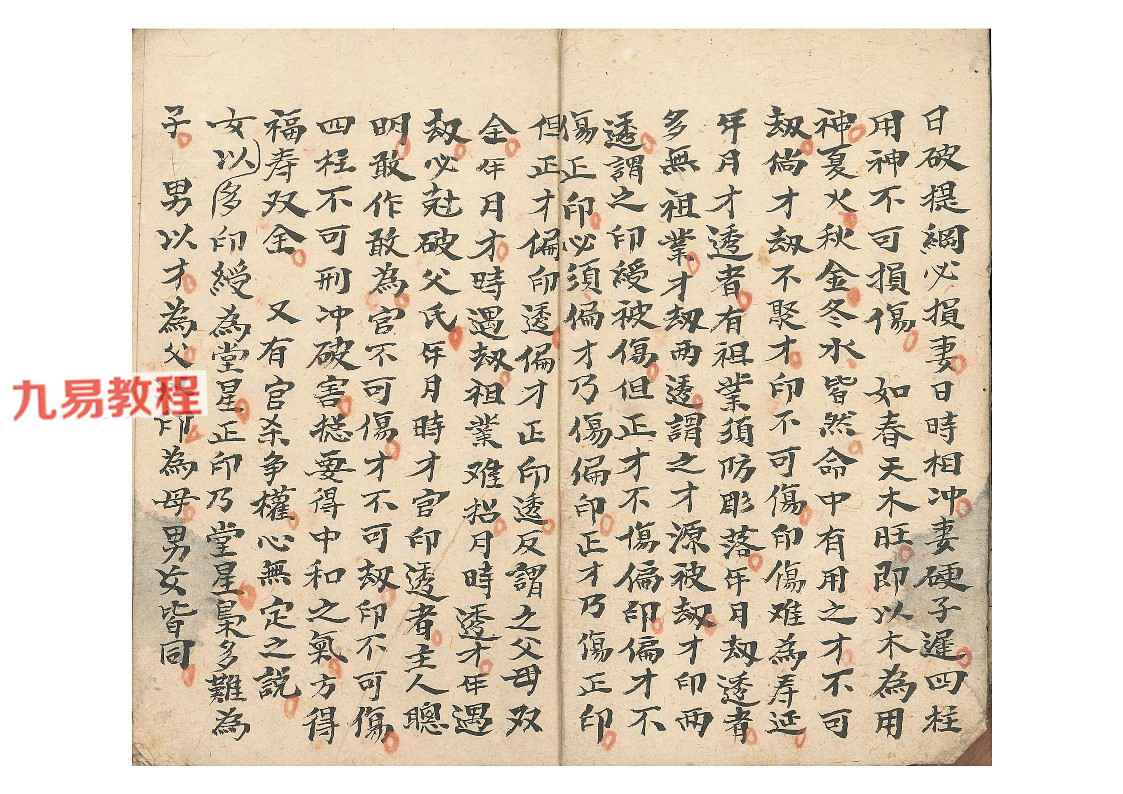 日破提綱必損妻日時相冲妻硬子遲四柱
用神不可損傷 如春天木旺即以木為用
神夏火秋金冬水皆然命中有用之才不可
劫倘才劫不聚才印不可傷印傷难為寿延
年月才透者有祖業須防彫落年月劫透者
多無祖業才劫两透謂之才源被劫才印两
透謂之印綬被傷但正才不傷偏印偏才不
傷正印必須偏才乃傷偏印正才乃傷正印
但正才偏印透偏才正印透反謂之父母双
全年月才時遇劫祖業难招月時透才年遇
劫必尅破父氏年月時才官印透者主人聰
明敢作敢為官不可傷才不可劫印不可傷
四柱不可刑冲破害揔要得中和之氣方得
福寿双全 又有官杀争權心無定之説
女以多印綬為堂星正印乃堂星梟多難為
子 男以才為父 印為母男女皆同
九易教程